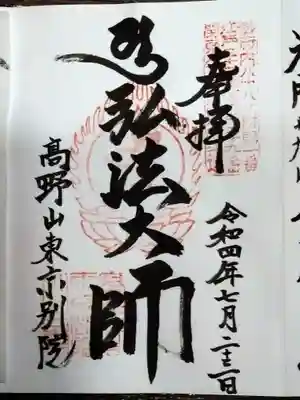 奉拝
令和四年七月二十三日
弘法大師
高野山東京別院